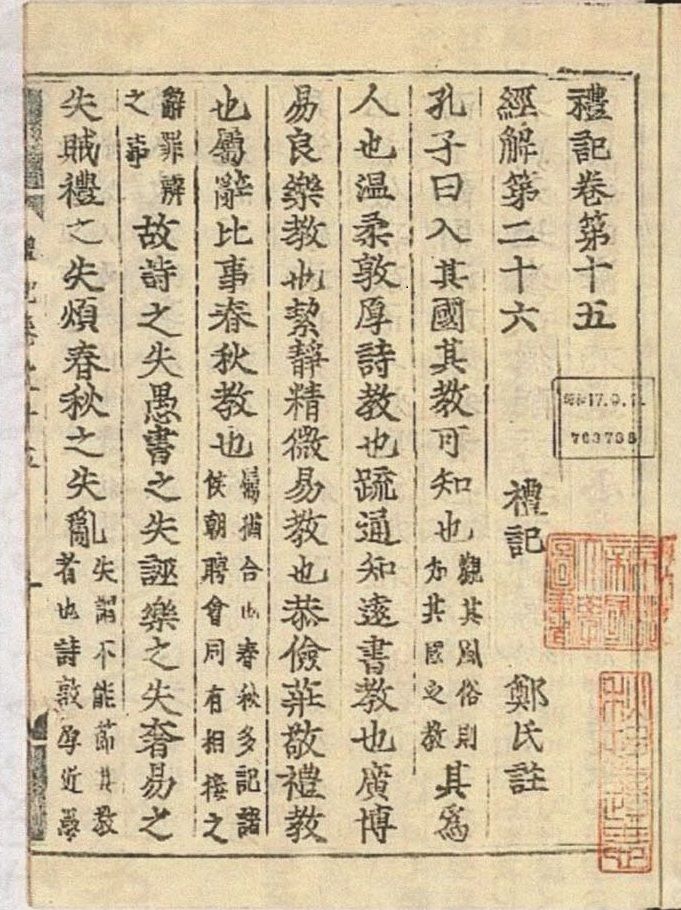 禮記卷第十五
經解第二十六 禮記 鄭氏註
孔子曰入其國其教可知也觀其風俗則其國之教其爲
人也温柔敦厚詩教也疏通知遠書教也廣博
易良樂教也絜靜精微易教也恭儉莊敬禮教
也屬辭比事春秋教也屬猶合也春秋多記諸侯朝聘會同有相接之
辭罪辯之事故詩之失愚書之失誣樂之失奢易之
失賊禮之失煩春秋之失亂失謂不能節其教者也詩敦厚近愚